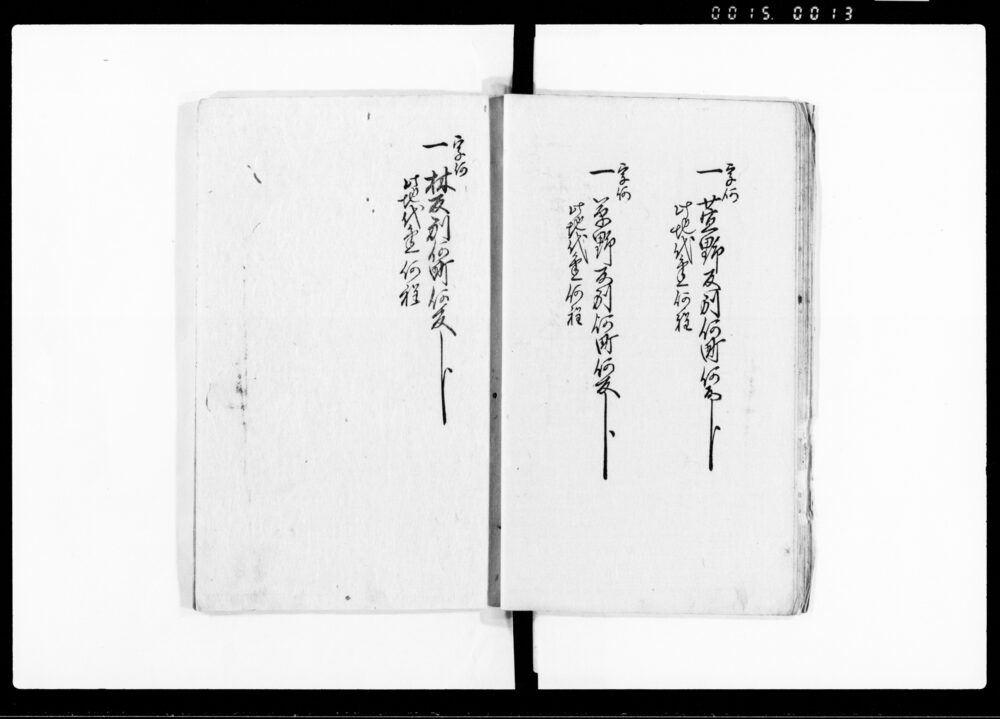 0015. 0013
字何
一 萱野反別何町何反
此地代金何程
字何
一 草野反別何町何反
此地代金何程
字何
一 林反別何町何反
此地代金何程